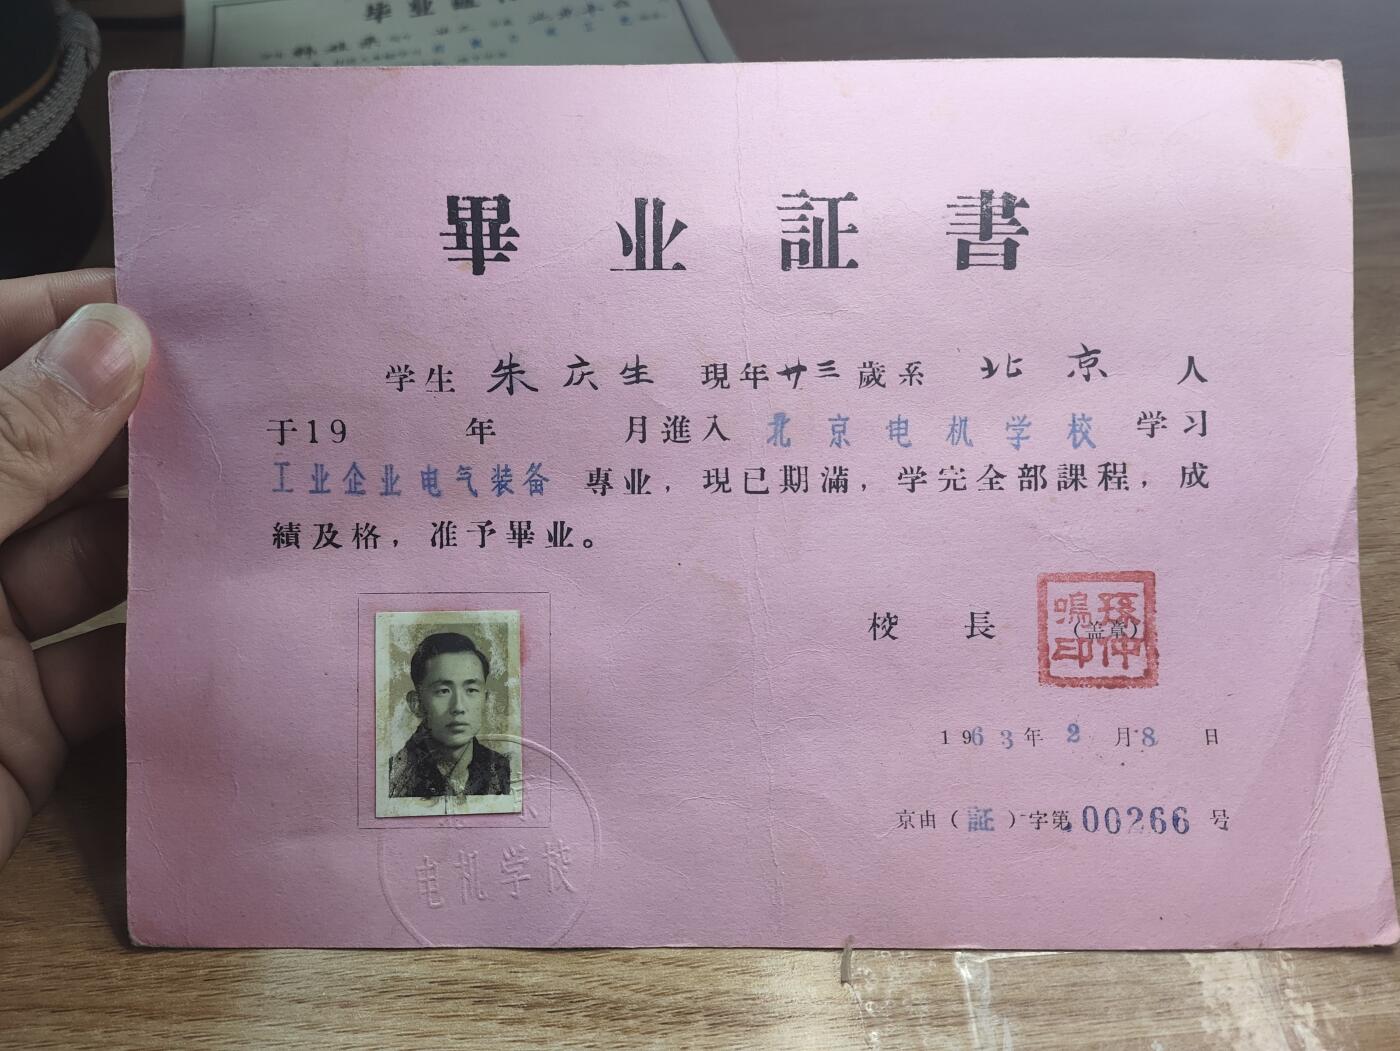 毕业证
畢业証書
学生 朱庆生 現年廿三歲系 北京 人
于19 年 月進入 北京电机学校 学习
工业企业电气装备 專业，現已期滿，学完全部課程，成
績及格，准予畢业。
校長 （盖章）
孫仲鳴印
1963年2月8日
京由（証）字第00266号
北京
电机学校